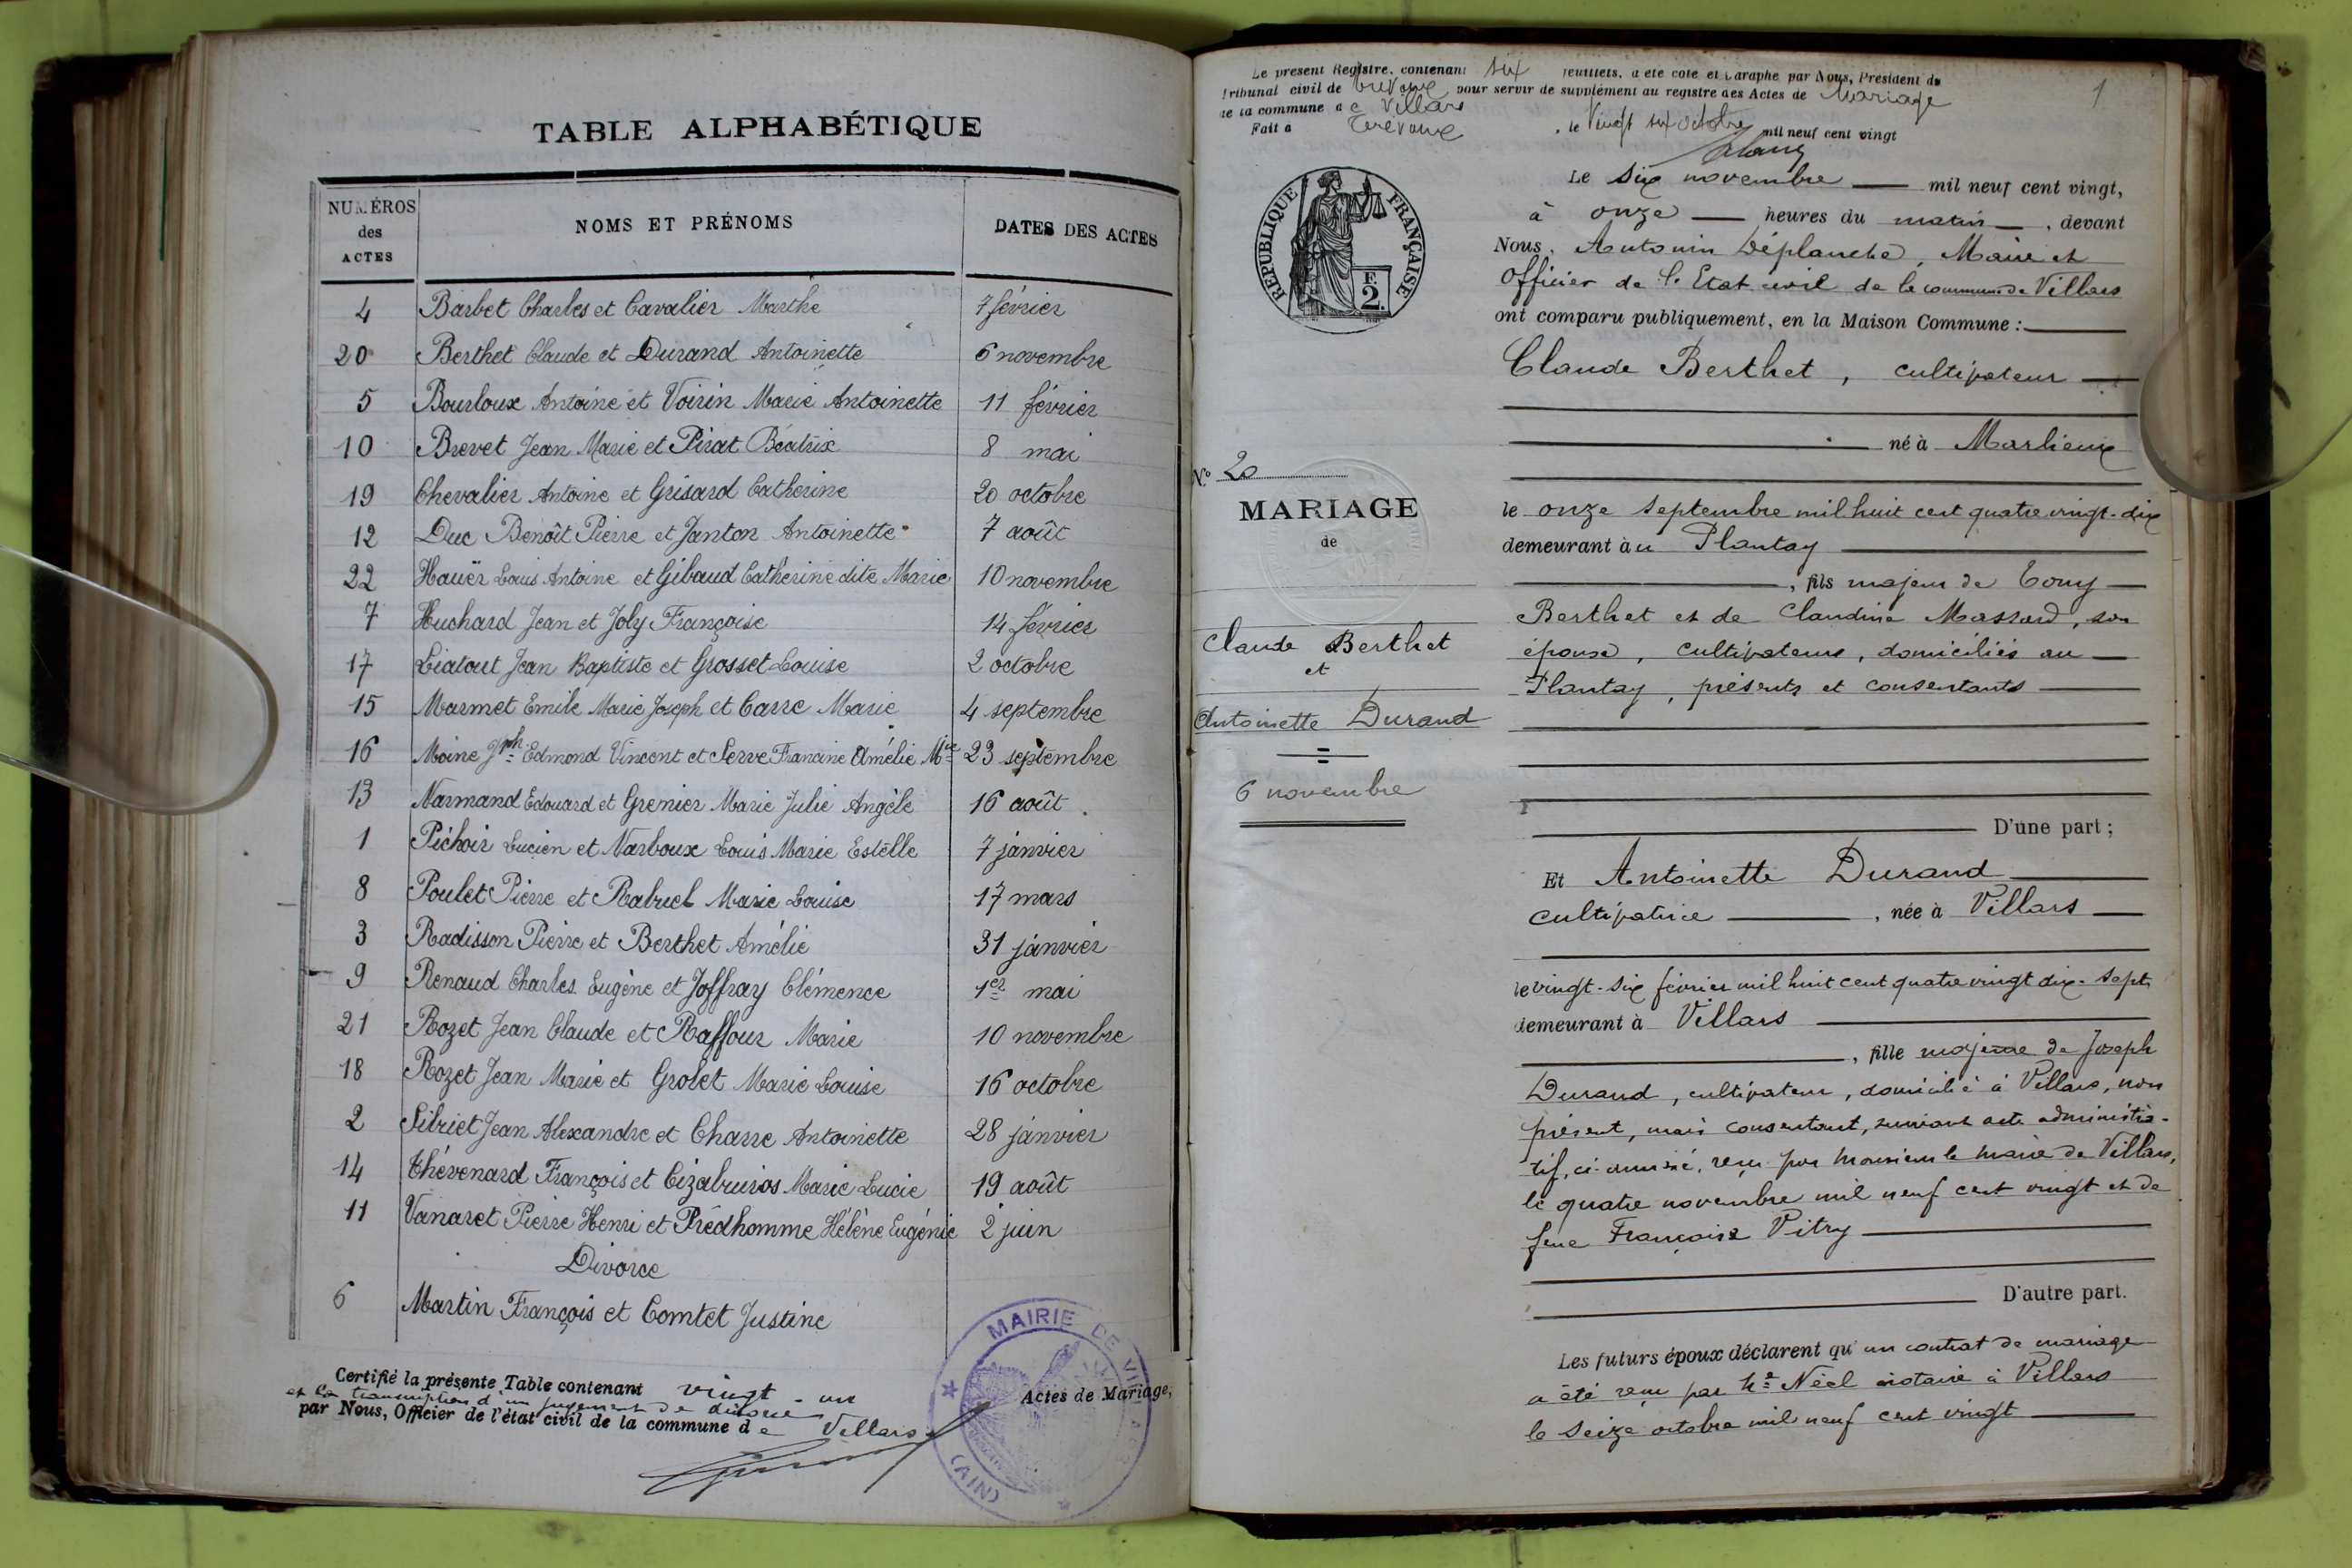 TABLE ALPHABÉTIQUE
NUMÉROS des ACTES
NOMS ET PRÉNOMS
DATES DES ACTES
4 Barbet Charles et Cavalier Marthe 7 février
20 Berthet Claude et Durand Antoinette 6 novembre
5 Bourloux Antoine et Voirin Marie Antoinette 11 février
10 Brevet Jean Marie et Pirat Béatrix 8 mai
19 Chevalier Antoine et Grisard Catherine 20 octobre
12 Duc Benoît Pierre et Janton Antoinette 7 août
22 Hauër Louis Antoine et Gibaud Catherine dite Marie 10 novembre
7 Huchard Jean et Joly Françoise 14 février
17 Liatout Jean Baptiste et Grosset Louise 2 octobre
15 Marmet Emile Marie Joseph et Carre Marie 4 septembre
16 Moine Jph Edmond Vincent et Serve Francine Amélie Mie 23 septembre
13 Narmand Edouard et Grenier Marie Julie Angèle 16 août
1 Péchoir Lucien et Narboux Louis Marie Estelle 7 janvier
8 Poulet Pierre et Rabuel Marie Louise 17 mars
3 Radisson Pierre et Berthet Amélie 31 janvier
9 Renaud Charles Eugène et Joffray Clémence 1er mai
21 Rozet Jean Claude et Raffour Marie 10 novembre
18 Rozet Jean Marie et Grobet Marie Louise 16 octobre
2 Silriet Jean Alexandre et Charre Antoinette 28 janvier
14 Thévenard François et Cizabuiros Marie Lucie 19 août
11 Vanaret Pierre Henri et Prédhomme Hélène Eugénie 2 juin
Divorce
6 Martin François et Comtet Justine
Certifié la présente Table contenant vingt-un Actes de Mariage,
et la transcription d'un jugement de divorce
par Nous, Officier de l'état civil de la commune de Villars
MAIRIE DE VILLARS
(AIN)
Le présent Registre, contenant six feuillets, a été coté et paraphé par Nous, Président du
Tribunal civil de Trévoux pour servir de supplément au registre des Actes de Mariage
de la commune de Villars
Fait à Trévoux, le vingt six octobre mil neuf cent vingt
1
RÉPUBLIQUE FRANÇAISE
F. 2.
N° 20
MARIAGE
de
Claude Berthet
et
Antoinette Durand
6 novembre
Le six novembre mil neuf cent vingt,
à onze heures du matin, devant
Nous, Antonin Déplanche, Maire et
Officier de l'Etat civil de la commune de Villars
ont comparu publiquement, en la Maison Commune :
Claude Berthet, cultivateur
né à Marlieux
le onze septembre mil huit cent quatre vingt-dix
demeurant au Plantay
, fils majeur de Tony
Berthet et de Claudine Massard, son
épouse, cultivateurs, domiciliés au
Plantay, présents et consentants
D'une part ;
Et Antoinette Durand
cultivatrice, née à Villars
le vingt-six février mil huit cent quatre vingt dix-sept
demeurant à Villars
, fille majeure de Joseph
Durand, cultivateur, domicilié à Villars, non
présent, mais consentant, suivant acte administra-
tif, ci-annexé, reçu par Monsieur le maire de Villars,
le quatre novembre mil neuf cent vingt et de
feue Françoise Vitry
D'autre part.
Les futurs époux déclarent qu'un contrat de mariage
a été reçu par Me Néel notaire à Villars
le seize octobre mil neuf cent vingt